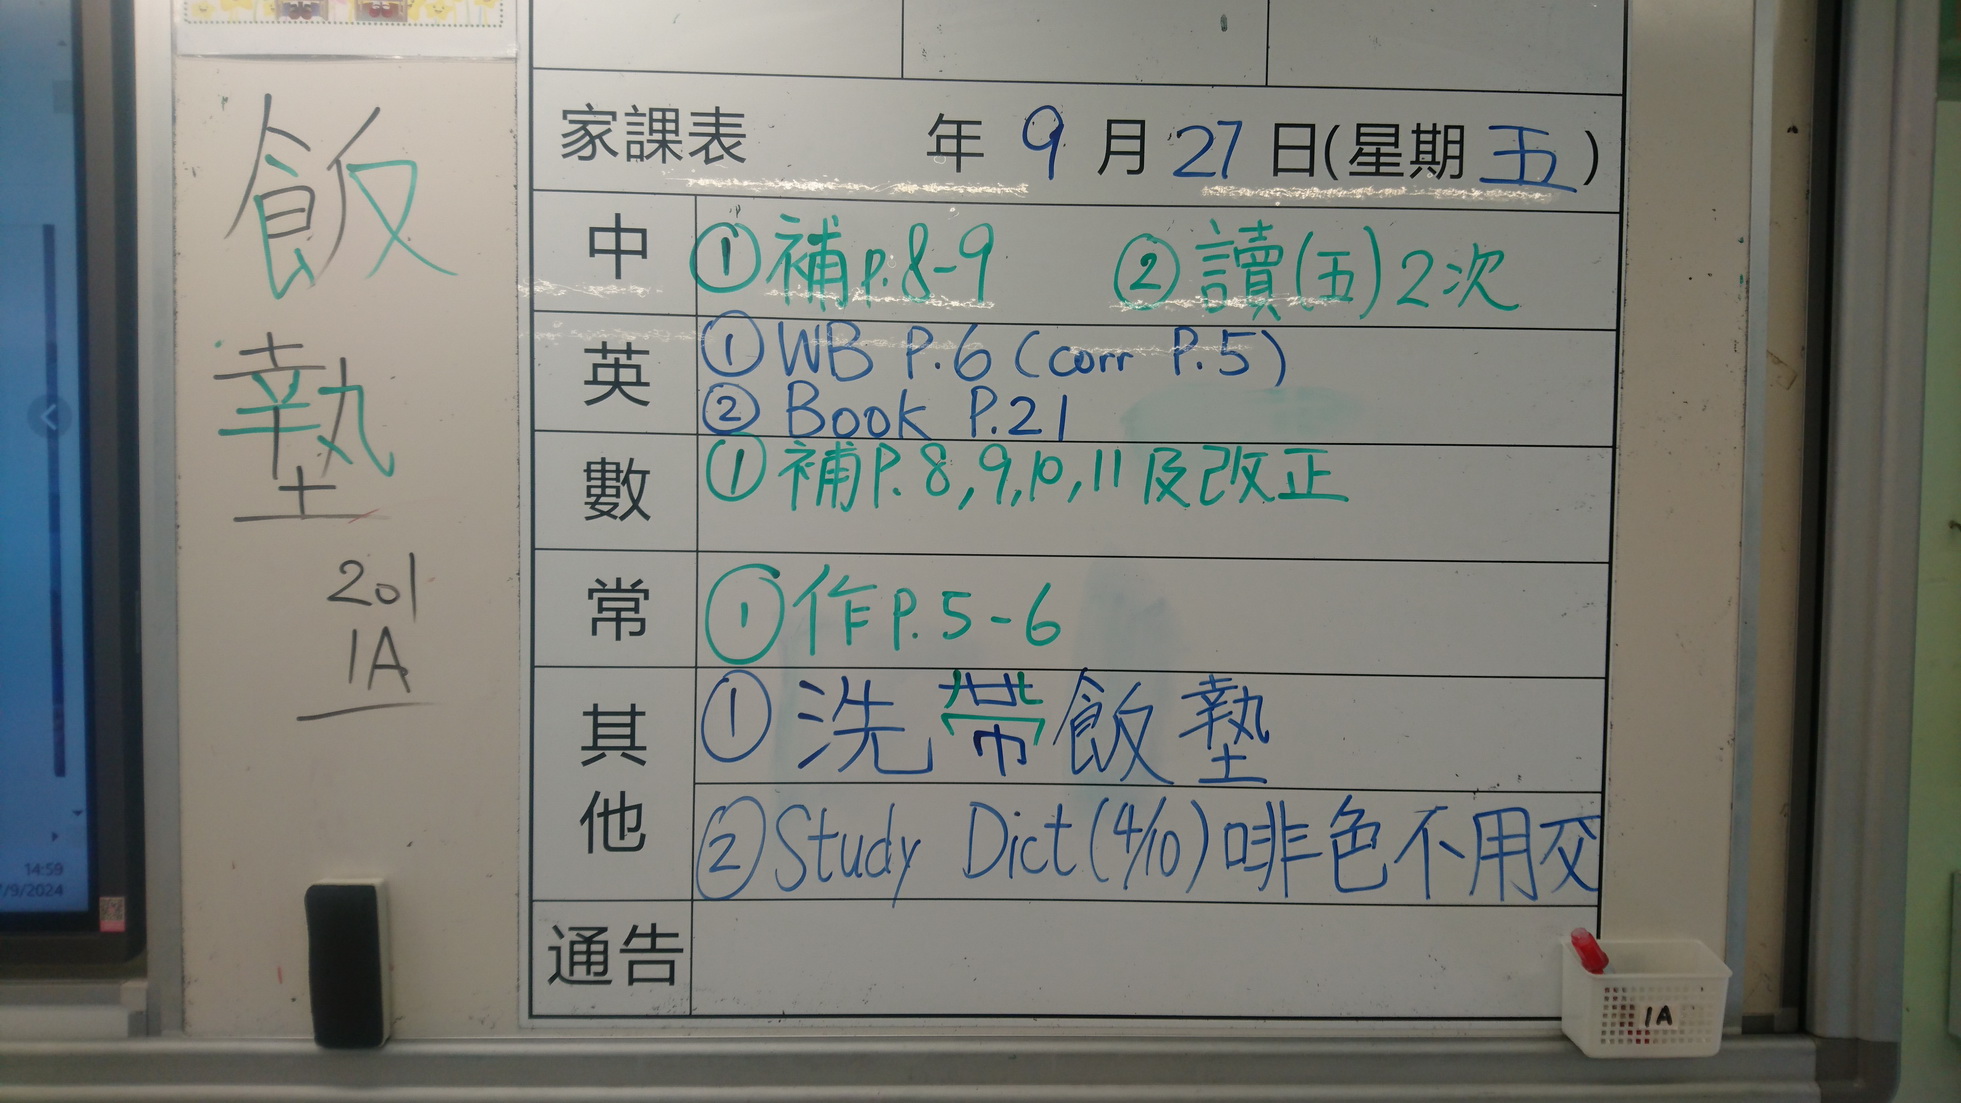 飯
墊
201
1A
14:59
/9/2024
家課表 年 9 月 27 日(星期 五)
中 ①補p.8-9 ②讀(五)2次
英 ①WB P.6 (corr P.5)
②Book P.21
數 ①補P.8,9,10,11及改正
常 ①作P.5-6
其他 ①洗帶飯墊
②Study Dict(4/10)啡色不用交
通告
1A